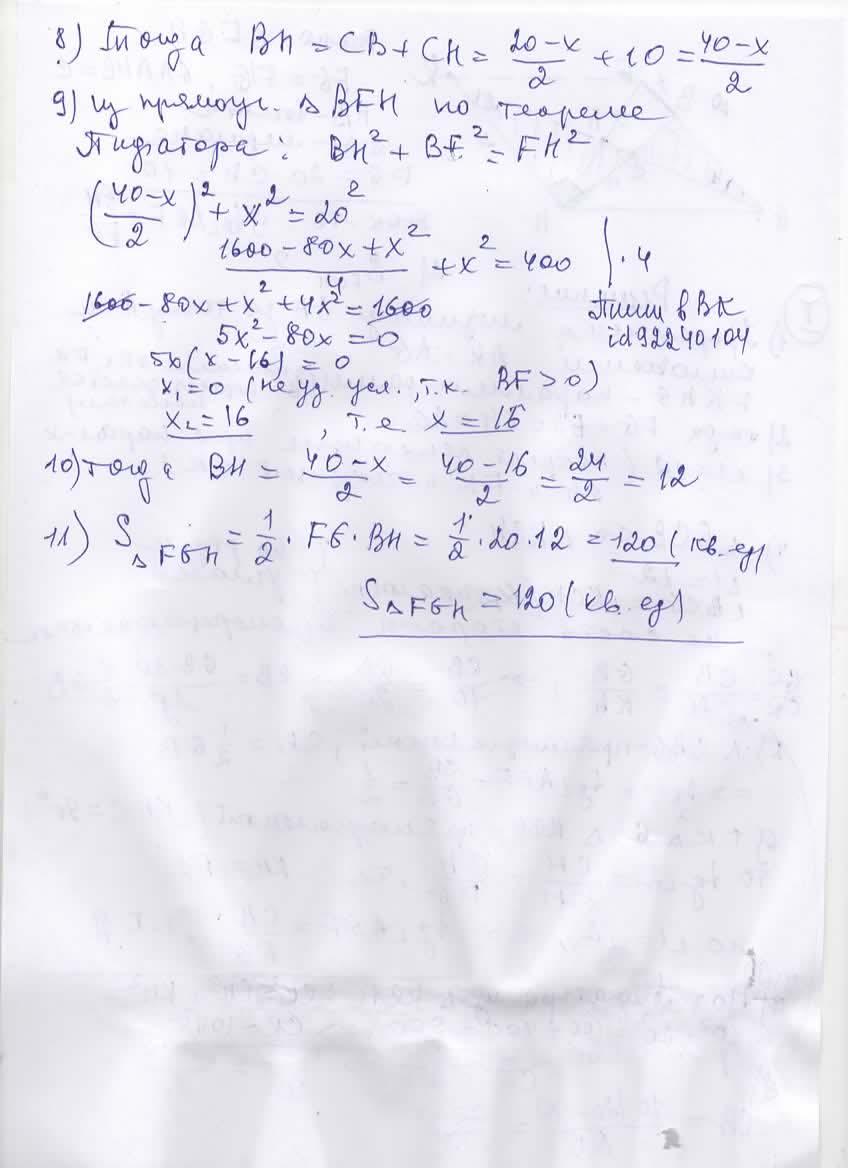 8) Тогда BH = CB + CH = \frac{20-x}{2} + 10 = \frac{40-x}{2}
9) из прямоуг. △BFH по теореме
Пифагора: BH² + BF² = FH²
(\frac{40-x}{2})² + x² = 20²
\frac{1600-80x+x²}{4} + x² = 400 | · 4
1600 - 80x + x² + 4x² = 1600
Пиши в ВК
5x² - 80x = 0
id92240104
5x(x-16) = 0
x₁ = 0 (не уд. усл., т.к. BF > 0)
x₂ = 16, т.е. x = 16
10) тогда BH = \frac{40-x}{2} = \frac{40-16}{2} = \frac{24}{2} = 12
11) S△FGH = \frac{1}{2} · FG · BH = \frac{1}{2} · 20 · 12 = 120 (кв. ед)
S△FGH = 120 (кв. ед)